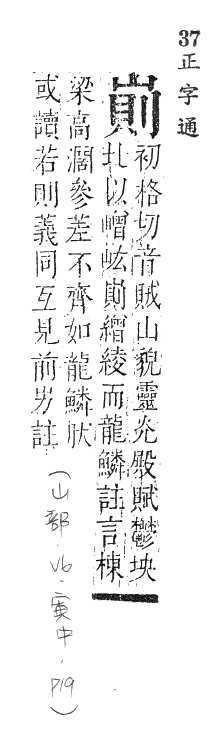 37正字通
崱
初格切音賊山貌靈光殿賦鬱坱
圠以嶒峵崱繒綾而龍鱗註言棟
梁高濶參差不齊如龍鱗狀
或讀若則義同互見前屴註
(山部.V6.寅中.P19)